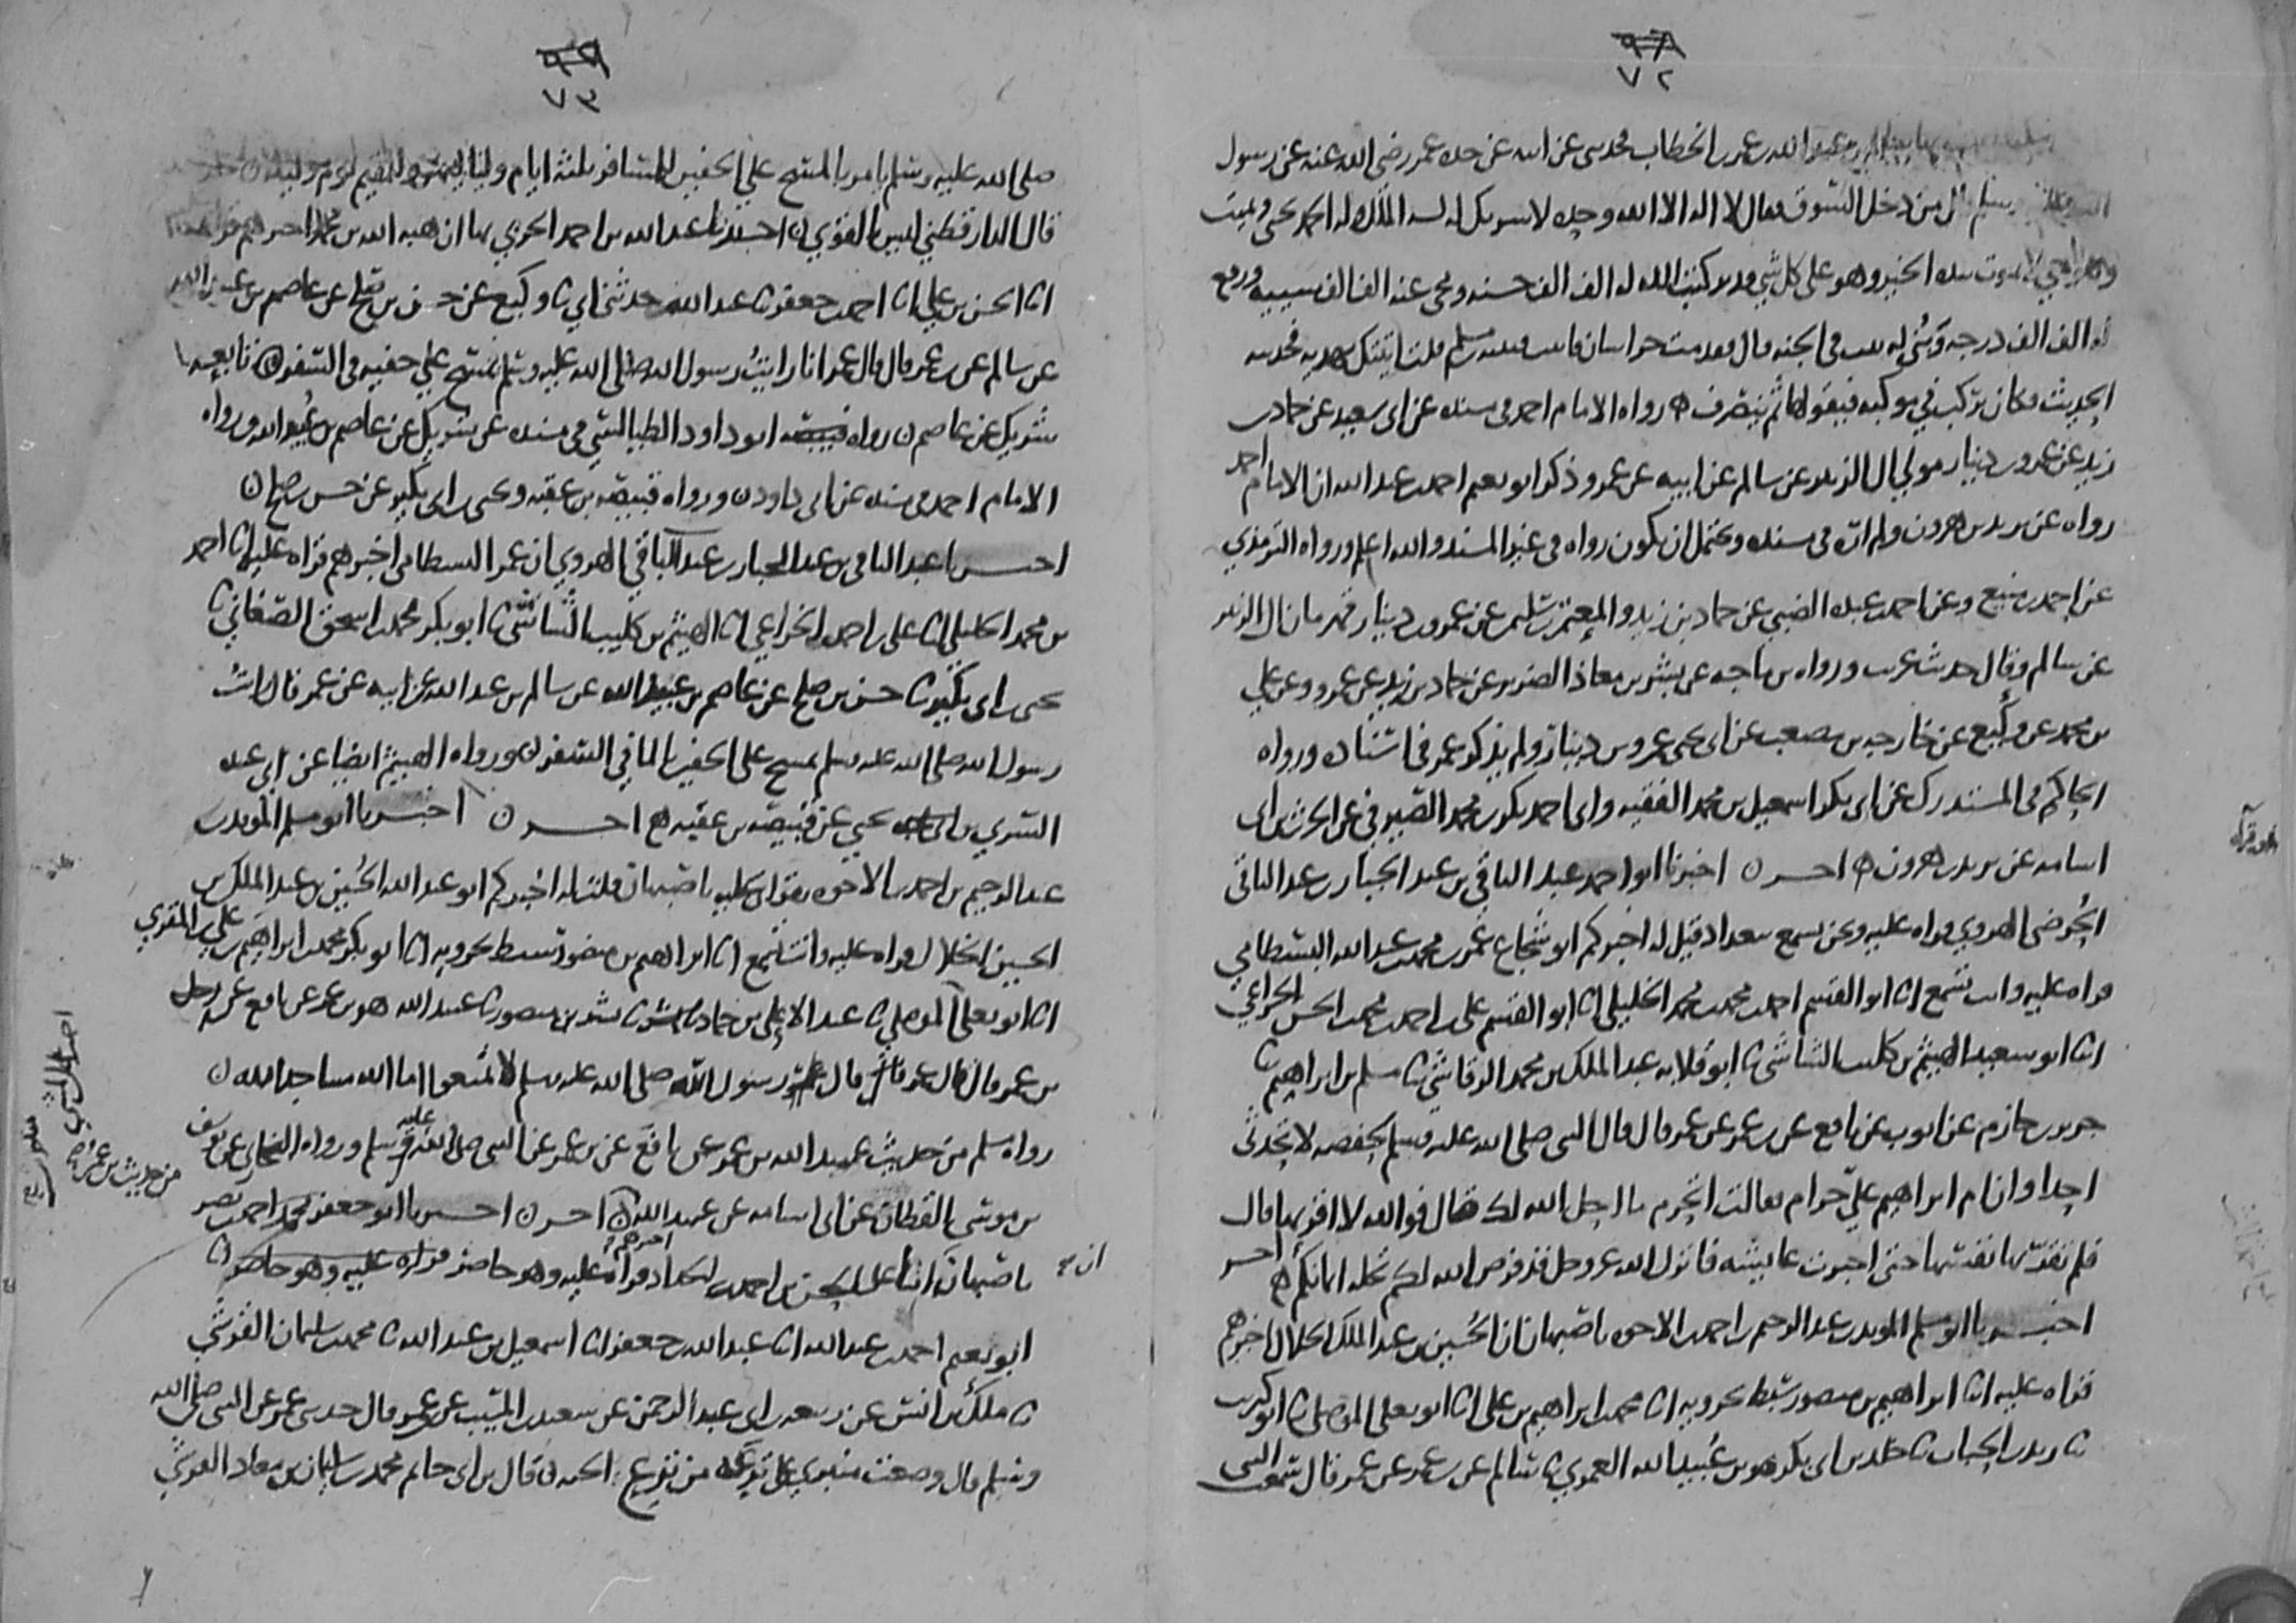 ٧٢
عبد الله بن عمر بن الخطاب فحدثني عن ابيه عن جده عمر رضي الله عنه عن رسول
قال من دخل السوق فقال لا اله الا الله وحده لا شريك له له الملك وله الحمد يحيي ويميت
لا يموت بيده الخير وهو على كل شي قدير كتب الله له الف الف حسنه ومحى عنه الف الف سييه ورفع
له الف الف درجه وبنى له بيت في الجنه قال فقدمت خراسان فاتيت قتيبه بن مسلم فقلت اتيتك بهديه فحدثته
الحديث فكان يركب في موكبه فيقولها ثم ينصرف رواه الامام احمد في مسنده عن ابي سعيد عن حماد بن
زيد عن عمرو بن دينار مولى ال الزبير عن سالم عن ابيه عن عمر وذكر ابو نعيم احمد بن عبد الله ان الامام احمد
رواه عن يزيد بن هرون ولم اره في مسنده ويحتمل ان يكون رواه في غير المسند والله اعلم ورواه الترمذي
عن احمد بن منيع وعن احمد بن عبده الضبي عن حماد بن زيد والمعتمر بن سليمن عن عمرو بن دينار قهرمان ال الزبير
عن سالم وقال حديث غريب ورواه بن ماجه عن بشر بن معاذ الضرير عن حماد بن زيد عن عمرو وعن علي
بن محمد عن وكيع عن خارجه بن مصعب عن ابي يحيى عمرو بن دينار ولم يذكر عمر في اسناده ورواه
الحاكم في المستدرك عن ابي بكر اسمعيل بن محمد الفقيه وابي احمد بكر بن محمد الصيرفي عن الحرث بن ابي
اسامه عن يزيد بن هرون اخر اخبرنا ابو احمد عبد الباقي بن عبد الجبار بن عبد الباقي
الحُرضي الهروي قراه عليه ونحن نسمع ببغداد قيل له اخبركم ابو شجاع عمر بن محمد بن عبد الله البسطامي
قراه عليه وانت تسمع انا ابو القسم احمد بن محمد بن محمد الخليلي انا ابو القسم علي بن احمد بن محمد بن الحسن الخزاعي
انا ابو سعيد الهيثم بن كليب الشاشي ثنا ابو قلابه عبد الملك بن محمد الرقاشي ثنا مسلم بن ابراهيم ثنا
جرير بن حازم عن ايوب عن نافع عن بن عمر عن عمر قال قال النبي صلى الله عليه وسلم لحفصه لا تحدثي
احدا وان ام ابراهيم علي حرام فقالت اتحرم ما احل الله لك قال فوالله لا اقربها قال
فلم يقربها نفسها حتى اخبرت عايشه فانزل الله عز وجل قد فرض الله لكم تحله ايمانكم اخر
اخبرنا ابو مسلم المويد بن عبد الرحيم بن احمد بن الاخوه باصبهان ان الحسين بن عبد الملك الخلال اخبرهم
قراه عليه انا ابراهيم بن منصور سبط بحرويه انا محمد بن ابراهيم بن علي انا ابو يعلى الموصلي ثنا ابو كريب
ثنا زيد بن الحباب ثنا خلد بن ابي بكر هو بن عُبيد الله العمري ثنا سالم عن بن عمر عن عمر قال سمعت النبي
٧٣
صلى الله عليه وسلم يامر بالمسح على الخفين للمسافر ثلثه ايام ولياليهن وللمقيم يوم وليله
قال الدارقطني ليس بالقوي اخبرنا عبد الله بن احمد الحربي بها ان هبه الله بن محمد اخبرهم قراه
انا الحسن بن علي انا احمد بن جعفر ثنا عبد الله حدثني ابي ثنا وكيع عن حسن بن صلح عن عاصم بن عبيد الله
عن سالم عن بن عمر قال قال عمر انا رايتُ رسول الله صلى الله عليه وسلم يمسح على خفيه في السفر تابعه
شريك عن عاصم رواه ابو داود الطيالسي في مسنده عن شريك عن عاصم بن عُبيد الله ورواه
الامام احمد في مسنده عن ابي داود ورواه قبيصه بن عقبه ويحيى بن ابي بكير عن حسن بن صلح
اخبرنا عبد الباقي بن عبد الجبار بن عبد الباقي الهروي ان عمر البسطامي اخبرهم قراه عليه انا احمد
بن محمد الخليلي انا علي بن احمد الخزاعي انا الهيثم بن كليب الشاشي ثنا ابو بكر محمد بن اسحق الصغاني ثنا
يحيى بن ابي بكير ثنا حسن بن صلح عن عاصم بن عبيد الله عن سالم بن عبد الله عن ابيه عن عمر قال رايت
رسول الله صلى الله عليه وسلم يمسح على الخفين بالما في السفر ورواه الهيثم ايضا عن ابن ابي عبده
السري بن يحيى عن قبيصه بن عقبه اخر اخبرنا ابو مسلم المويد بن
عبد الرحيم بن احمد بن الاخوه بقراتي عليه باصبهان قلت له اخبركم ابو عبد الله الحُسين بن عبد الملك بن
الحسين الخلال قراه عليه وانت تسمع انا ابراهيم بن منصور سبط بحرويه انا ابو بكر محمد بن ابراهيم بن علي بن المقري
انا ابو يعلى الموصلي ثنا عبد الاعلى بن حماد ثنا بشر بن منصور ثنا عبيد الله هو بن عمر عن نافع عن
بن عمر قال قال عمر قال رسول الله صلى الله عليه وسلم لا تمنعوا اما الله مساجد الله
رواه مسلم من حديث عبيد الله بن عمر عن نافع عن بن عمر عن النبي صلى الله عليه وسلم ورواه البخاري عن يوسف
بن موسى القطان عن ابي اسامه عن عبيد الله اخر اخبرنا ابو جعفر محمد بن احمد بن نصر
باصبهان ان ابا علي الحسن بن احمد الحداد اخبرهم قراه عليه وهو حاضر انا
ابو نعيم احمد بن عبد الله انا عبد الله بن جعفر انا اسمعيل بن عبد الله ثنا محمد بن سليمان القرشي
ثنا ملك بن انس عن ربيعه بن ابي عبد الرحمن عن سعيد بن المسيب عن بن عمر قال حدثني عمر عن النبي صلى الله
وسلم قال وضعت منبري على ترعه من ترع الجنه قال بن ابي حاتم محمد بن سليمان بن معاذ القرشي
من حديث بن عمر